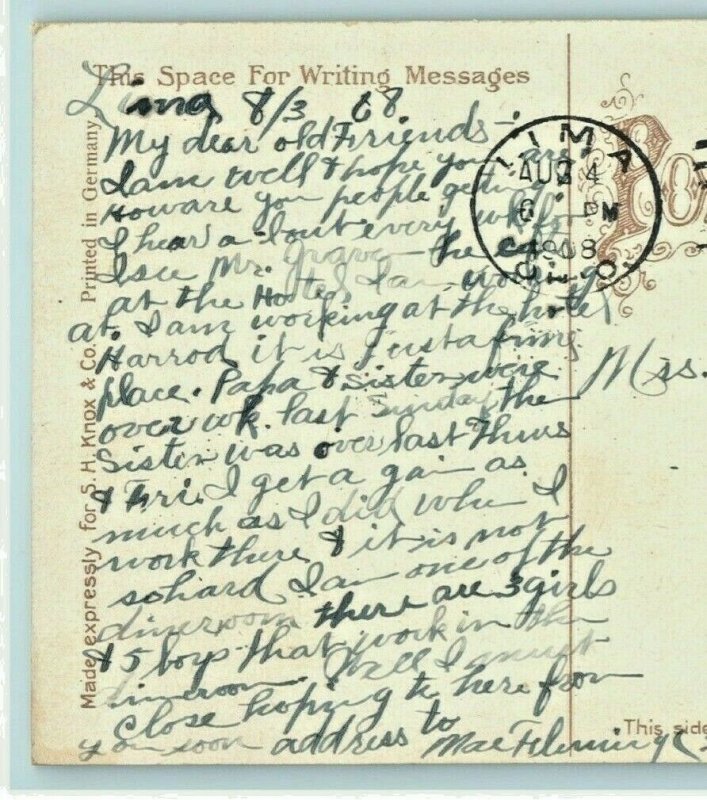 This Space For Writing Messages
Lima 8/3 08
My dear old Friends-
I am well & hope you are
How are you people getting
I hear a-bout every wk for
I see Mr. the
at the Hotel I am working
at. I am working at the hotel
Harrod it is just a fine
place. Papa & sister were
over wk. last Sunday the
Sister was over last Thurs
& Fri. I get a gain as
much as I did when I
work there & it is not
so hard I am one of the
dineroom there are 3 girls
& 5 boys that work in the
dineroom. Well I must
close hoping to here from
you soon address to Mae Fleming
Printed in Germany
Made expressly for S. H. Knox & Co.
LIMA
AUG 4
6 PM
1908
OHIO
Miss.
This side